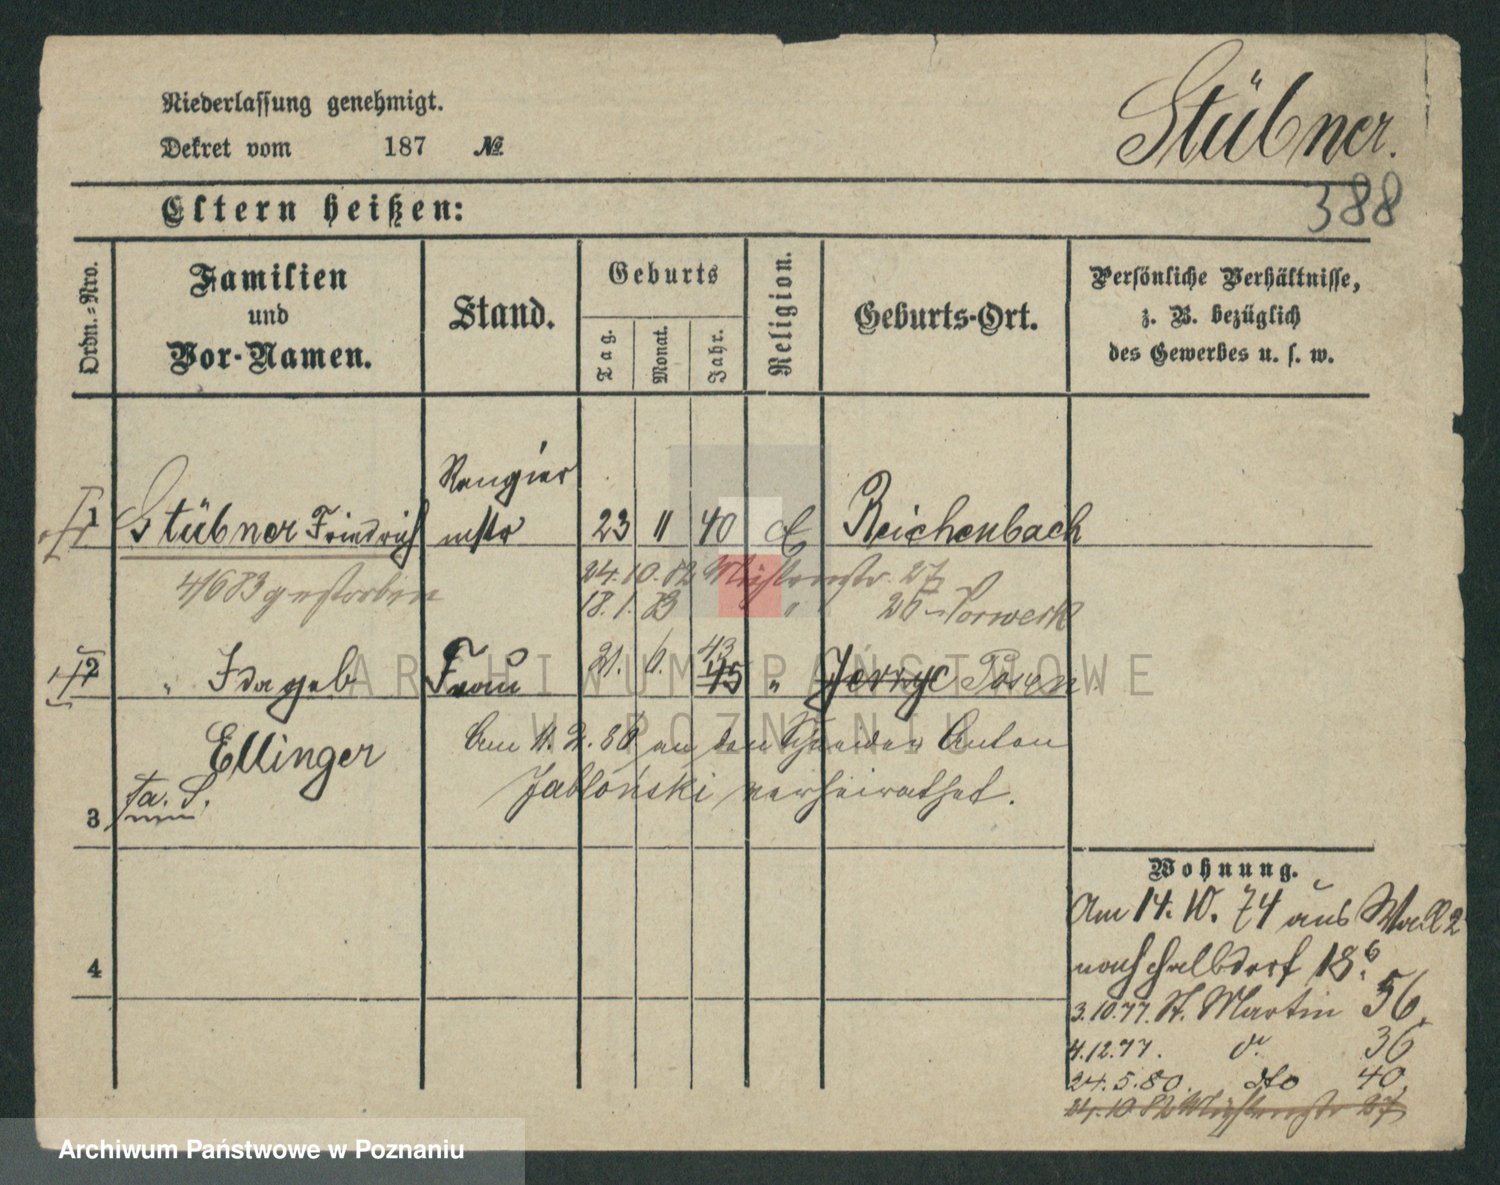 Niederlassung genehmigt.
Dekret vom 187 №
Stübner.
388
Eltern heißen:
Ordn.-Nro.
Familien
und
Vor-Namen.
Stand.
Geburts
Tag.
Monat.
Jahr.
Religion.
Geburts-Ort.
Persönliche Verhältnisse,
z. B. bezüglich
des Gewerbes u. s. w.
Rangier
1 Stübner Friedrich mstr 23 11 40 Reichenbach
4/6 83 gestorben 24.10.82 Mühlenstr. 27
18.1.83 " " 26 Vorwerk
2 " Ida geb Frau 21. 6. 43 45 " Jerzyc Posen
ARCHIWUM PAŃSTWOWE
W POZNANIU
Ellinger Am 11.2.86 an den Schneider Anton
Jabloński verheirathet.
3
Wohnung.
Am 14.10.74 aus Wall 2
nach Halbdorf 18b.
3.10.77. St. Martin 56.
4.12.77. 36
24.5.80. dto 40.
24.10.82 Mühlenstr 27
4
Archiwum Państwowe w Poznaniu